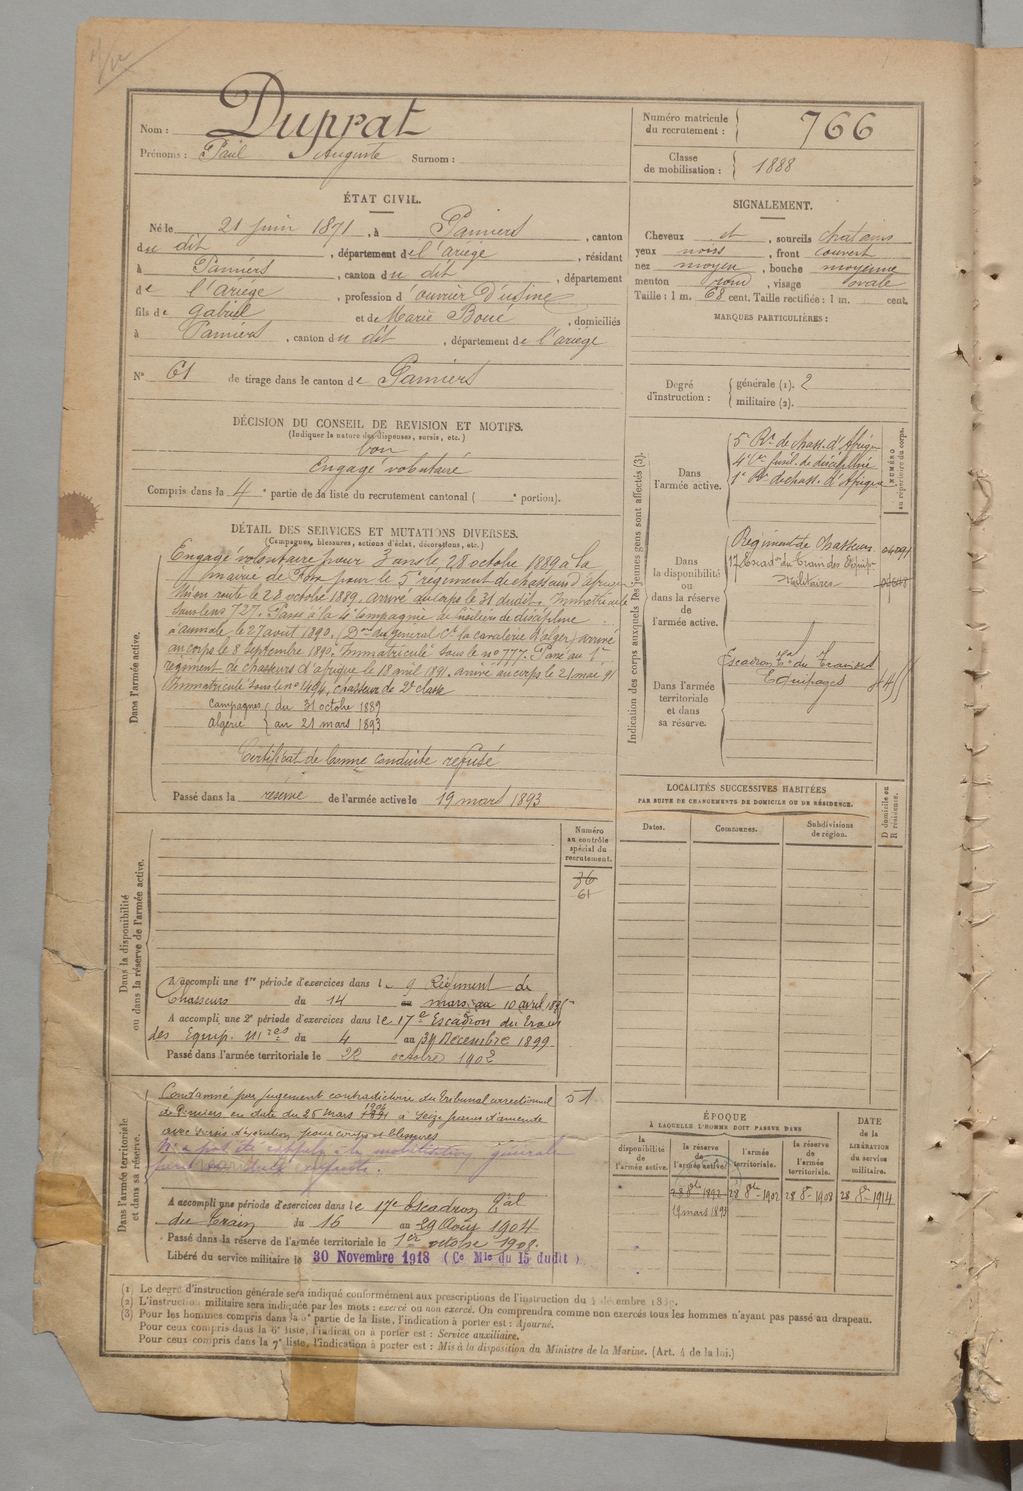 Nom : Duprat
Prénoms : Paul Auguste Surnom :
Numéro matricule du recrutement : 766
Classe de mobilisation : 1888
ÉTAT CIVIL.
Né le 21 juin 1871, à Pamiers, canton
du dit, département de l'ariège, résidant
à Pamiers, canton du dit, département
de l'ariège, profession d'ouvrier d'usine
fils de Gabriel et de Marie Boué, domiciliés
à Pamiers, canton du dit, département de l'ariège
N° 61 de tirage dans le canton de Pamiers
SIGNALEMENT.
Cheveux et, sourcils chatains
yeux noirs, front couvert
nez moyen, bouche moyenne
menton rond, visage ovale
Taille : 1 m. 68 cent. Taille rectifiée : 1 m. cent.
MARQUES PARTICULIÈRES :
Degré d'instruction : générale (1). 2
militaire (2).
DÉCISION DU CONSEIL DE REVISION ET MOTIFS.
(Indiquer la nature des dispenses, sursis, etc.)
bon
Engagé volontaire
Compris dans la 4e partie de la liste du recrutement cantonal ( e portion).
DÉTAIL DES SERVICES ET MUTATIONS DIVERSES.
(Campagnes, blessures, actions d'éclat, décorations, etc.)
Dans l'armée active.
Engagé volontaire pour 3 ans le 28 octobre 1889 à la
mairie de Foix pour le 5e régiment de chasseurs d'afrique
Mis en route le 28 octobre 1889. arrivé au corps le 31 dudit. Immatriculé
sous le no 727. Passé à la 4e Compagnie de fusiliers de discipline
à aumale, le 27 août 1890. (Don du général Ct la cavalerie d'alger) arrivé
au corps le 8 septembre 1890. Immatriculé sous le no 777. Passé au 1er
régiment de chasseurs d'afrique le 18 avril 1891. arrivé au corps le 21 mai 91
Immatriculé sous le no 1494, chasseur de 2e classe
Campagnes du 31 octobre 1889
algérie au 21 mars 1893
Certificat de bonne conduite refusé
Passé dans la réserve de l'armée active le 19 mars 1893
Indication des corps auxquels les jeunes gens sont affectés (3).
NUMÉRO au répertoire du corps.
Dans l'armée active.
5e Rt de chass. d'Afrique
4e Cie fusil. de discipline
1er Rt de chass. d'Afrique
Dans la disponibilité ou dans la réserve de l'armée active.
Régiment de Chasseurs
17e Escadon du Train des Équip.
Militaires
Dans l'armée territoriale et dans sa réserve.
Escadron Tal du Train des
Équipages
LOCALITÉS SUCCESSIVES HABITÉES
PAR SUITE DE CHANGEMENTS DE DOMICILE OU DE RÉSIDENCE.
Dates. Communes. Subdivisions de région. D domicile ou R résidence.
Dans la disponibilité ou dans la réserve de l'armée active.
Numéro au contrôle spécial du recrutement.
36
61
A accompli une 1re période d'exercices dans le 9 Régiment de
Chasseurs du 14 mars au 10 avril 189
A accompli une 2e période d'exercices dans le 17e Escadron du Train
des Equip. Mres du 4 au 31 Décembre 1899
Passé dans l'armée territoriale le 22 octobre 1902
Dans l'armée territoriale et dans sa réserve.
Condamné par jugement contradictoire du tribunal correctionnel
de Pamiers en date du 26 mars 1904 à seize francs d'amende
avec sursis d'exécution pour coups et blessures
51
N'a pas été rappelé à la mobilisation générale
A accompli une période d'exercices dans le 17e Escadron Tal
du Train du 16 au 29 Août 1904
Passé dans la réserve de l'armée territoriale le 1er octobre 1909.
Libéré du service militaire le 30 Novembre 1918 (Ce Mle du 15 dudit)
ÉPOQUE
A LAQUELLE L'HOMME DOIT PASSER DANS
la disponibilité de l'armée active. la réserve de l'armée active. l'armée territoriale. la réserve de l'armée territoriale.
DATE de la LIBÉRATION du service militaire.
28 8bre 1892 28 8bre 1902 28 8bre 1908 28 8bre 1914
19 mars 1893
(1) Le degré d'instruction générale sera indiqué conformément aux prescriptions de l'instruction du 4 décembre
(2) L'instruction militaire sera indiquée par les mots : exercé ou non exercé. On comprendra comme non exercés tous les hommes n'ayant pas passé au drapeau.
(3) Pour les hommes compris dans la 5e partie de la liste, l'indication à porter est : Ajourné.
Pour ceux compris dans la 6e liste, l'indication à porter est : Service auxiliaire.
Pour ceux compris dans la 7e liste, l'indication à porter est : Mis à la disposition du Ministre de la Marine. (Art. 4 de la loi.)